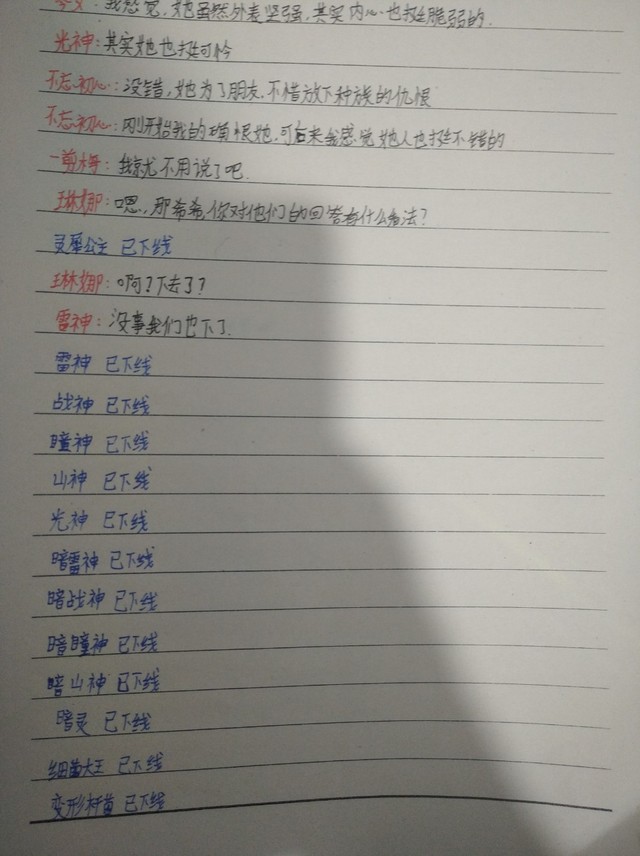 我感觉,她虽然外表坚强,其实内心也挺脆弱的.
光神:其实她也挺可怜
不忘初心:没错,她为了朋友.不惜放下种族的仇恨
不忘初心:刚开始我的确恨她,可后来我感觉她人也挺不错的
一剪梅:我就不用说了吧.
琳娜:嗯,那希希,你对他们的回答有什么看法?
灵犀公主 已下线
琳娜:啊?下去了?
雷神:没事我们也下了.
雷神 已下线
战神 已下线
瞳神 已下线
山神 已下线
光神 已下线
暗雷神 已下线
暗战神 已下线
暗瞳神 已下线
暗山神 已下线
暗灵 已下线
细菌大王 已下线
变形杆菌 已下线